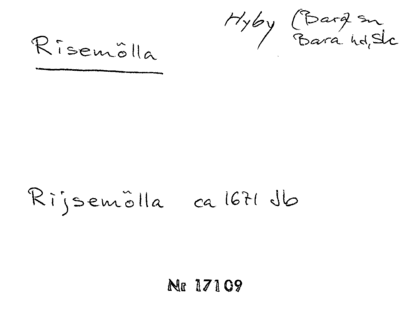 Hyby (Bara) sn
Bara hd, Sk
Risemölla
Rijsemölla ca 1671 Jb
Nr 17109